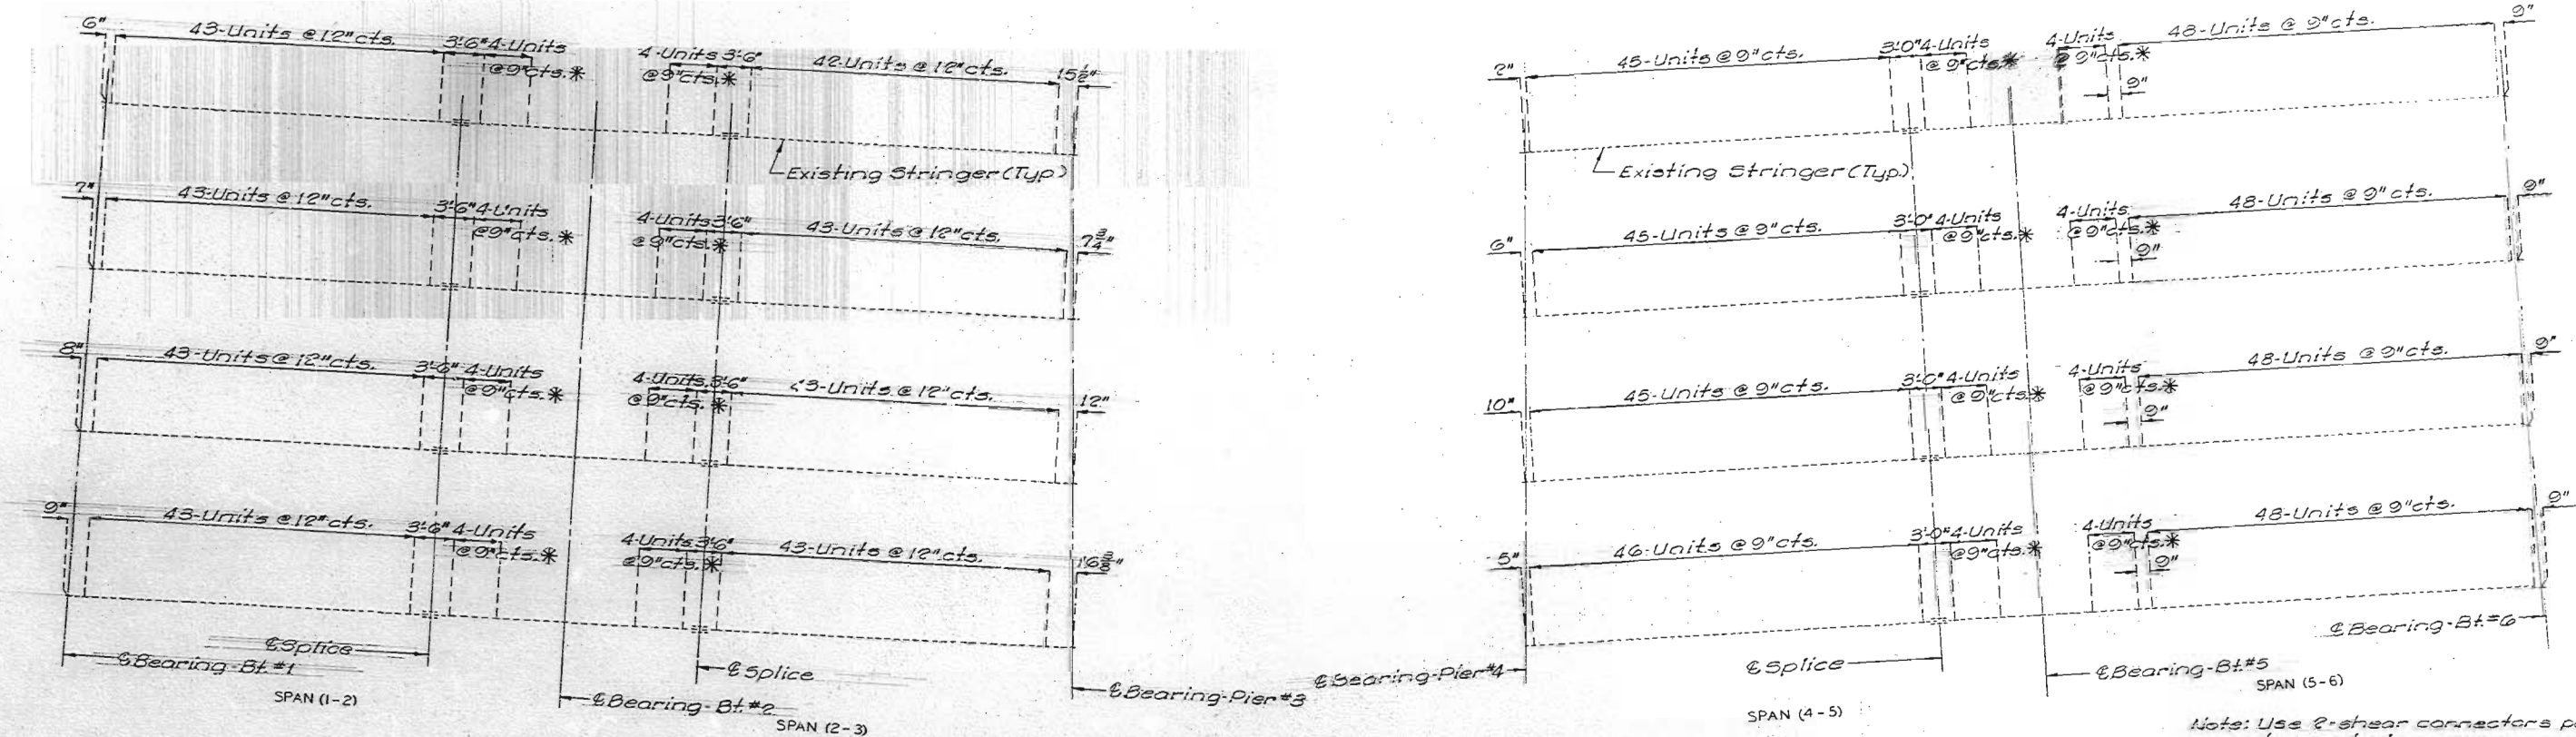 6" 43-Units @ 12" cts. 3'-6" 4-Units
@ 9" cts. *
4-Units 3'-6" 42-Units @ 12" cts. 15 1/2"
@ 9" cts. *
Existing Stringer (Typ.)
7" 43-Units @ 12" cts. 3'-6" 4-Units
@ 9" cts. *
4-Units 3'-6" 43-Units @ 12" cts. 7 3/4"
@ 9" cts. *
8" 43-Units @ 12" cts. 3'-6" 4-Units
@ 9" cts. *
4-Units 3'-6" 43-Units @ 12" cts. 12"
@ 9" cts. *
9" 43-Units @ 12" cts. 3'-6" 4-Units
@ 9" cts. *
4-Units 3'-6" 43-Units @ 12" cts.
@ 9" cts. *
℄ Splice
℄ Bearing-Bt. #1
SPAN (1-2)
℄ Splice
℄ Bearing-Bt. #2
SPAN (2-3)
℄ Bearing-Pier #3
2" 45-Units @ 9" cts. 3'-0" 4-Units
@ 9" cts. *
4-Units 48-Units @ 9" cts. 9"
@ 9" cts. *
9"
Existing Stringer (Typ.)
6" 45-Units @ 9" cts. 3'-0" 4-Units
@ 9" cts. *
4-Units 48-Units @ 9" cts. 9"
@ 9" cts. *
9"
10" 45-Units @ 9" cts. 3'-0" 4-Units
@ 9" cts. *
4-Units 48-Units @ 9" cts. 9"
@ 9" cts. *
9"
5" 46-Units @ 9" cts. 3'-0" 4-Units
@ 9" cts. *
4-Units 48-Units @ 9" cts. 9"
@ 9" cts. *
9"
℄ Bearing-Pier #4
℄ Splice
SPAN (4-5)
℄ Bearing-Bt. #5
℄ Bearing-Bt. #6
SPAN (5-6)
Note: Use 2-shear connectors